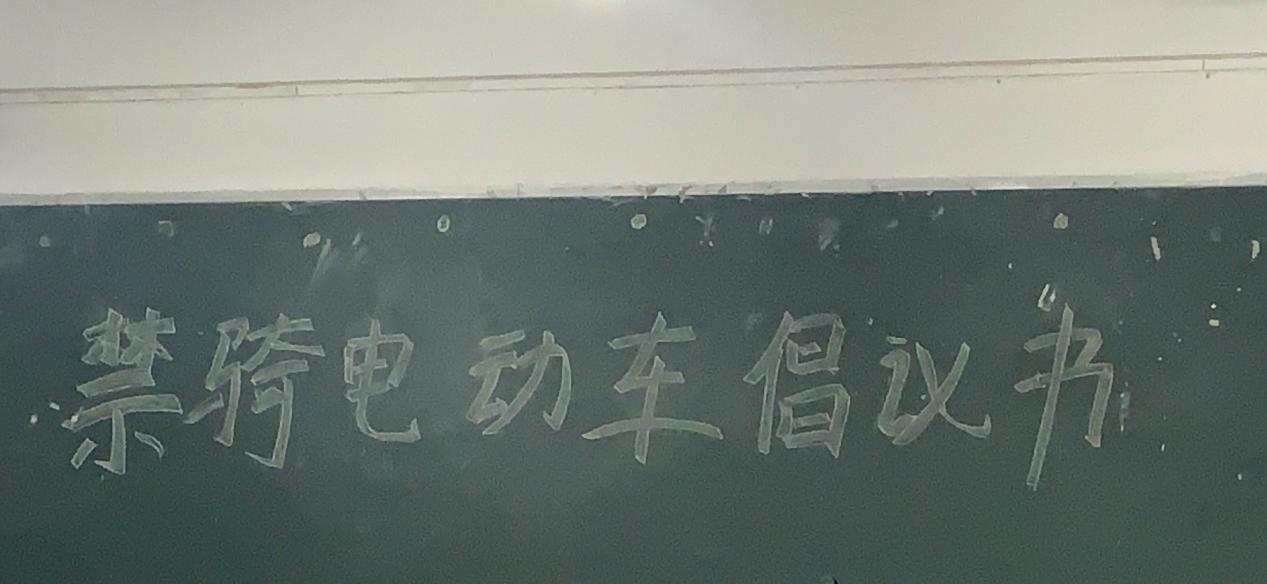 禁骑电动车倡议书